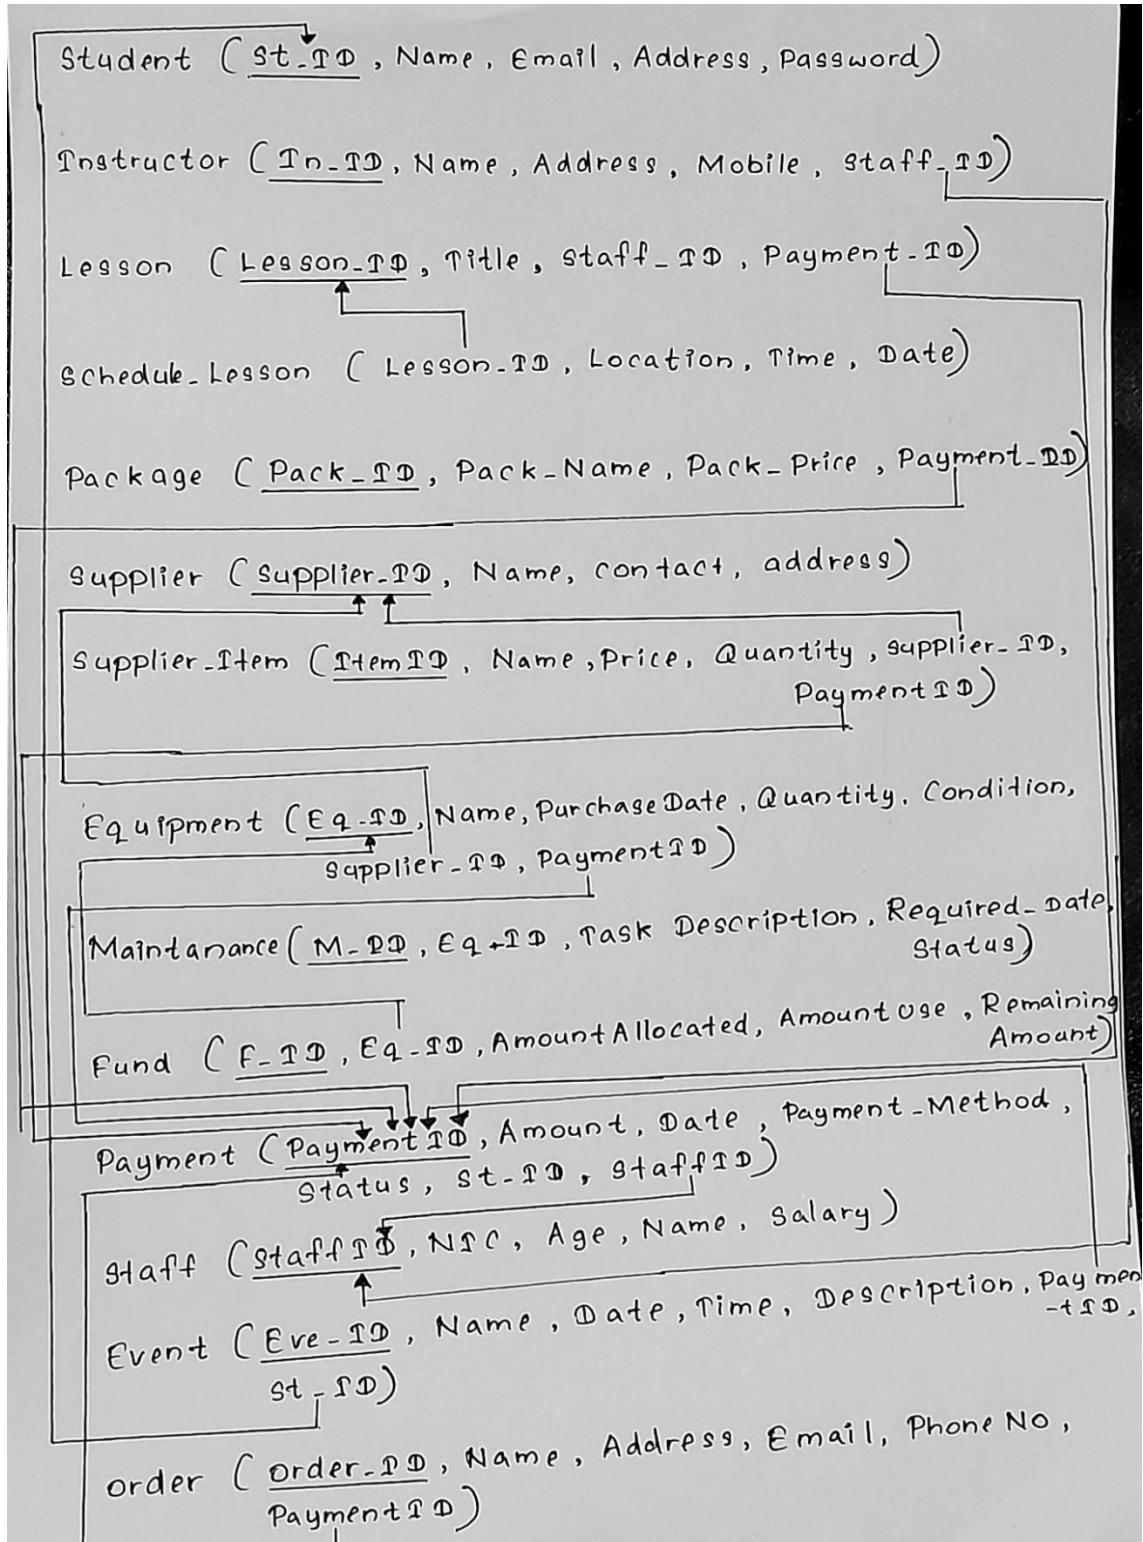 Student (St_ID, Name, Email, Address, Password)
Instructor (In_ID, Name, Address, Mobile, Staff_ID)
Lesson (Lesson_ID, Title, Staff_ID, Payment_ID)
Schedule_Lesson (Lesson_ID, Location, Time, Date)
Package (Pack_ID, Pack_Name, Pack_Price, Payment_ID)
Supplier (Supplier_ID, Name, contact, address)
Supplier_Item (ItemID, Name, Price, Quantity, Supplier_ID,
PaymentID)
Equipment (Eq_ID, Name, PurchaseDate, Quantity, Condition,
Supplier_ID, PaymentID)
Maintanance (M_ID, Eq_ID, Task Description, Required_Date,
Status)
Fund (F_ID, Eq_ID, AmountAllocated, Amountuse, Remaining
Amount)
Payment (PaymentID, Amount, Date, Payment_Method,
Status, St_ID, StaffID)
Staff (StaffID, NIC, Age, Name, Salary)
Event (Eve_ID, Name, Date, Time, Description, Paymen
-tID,
St_ID)
Order (Order_ID, Name, Address, Email, Phone No,
PaymentID)